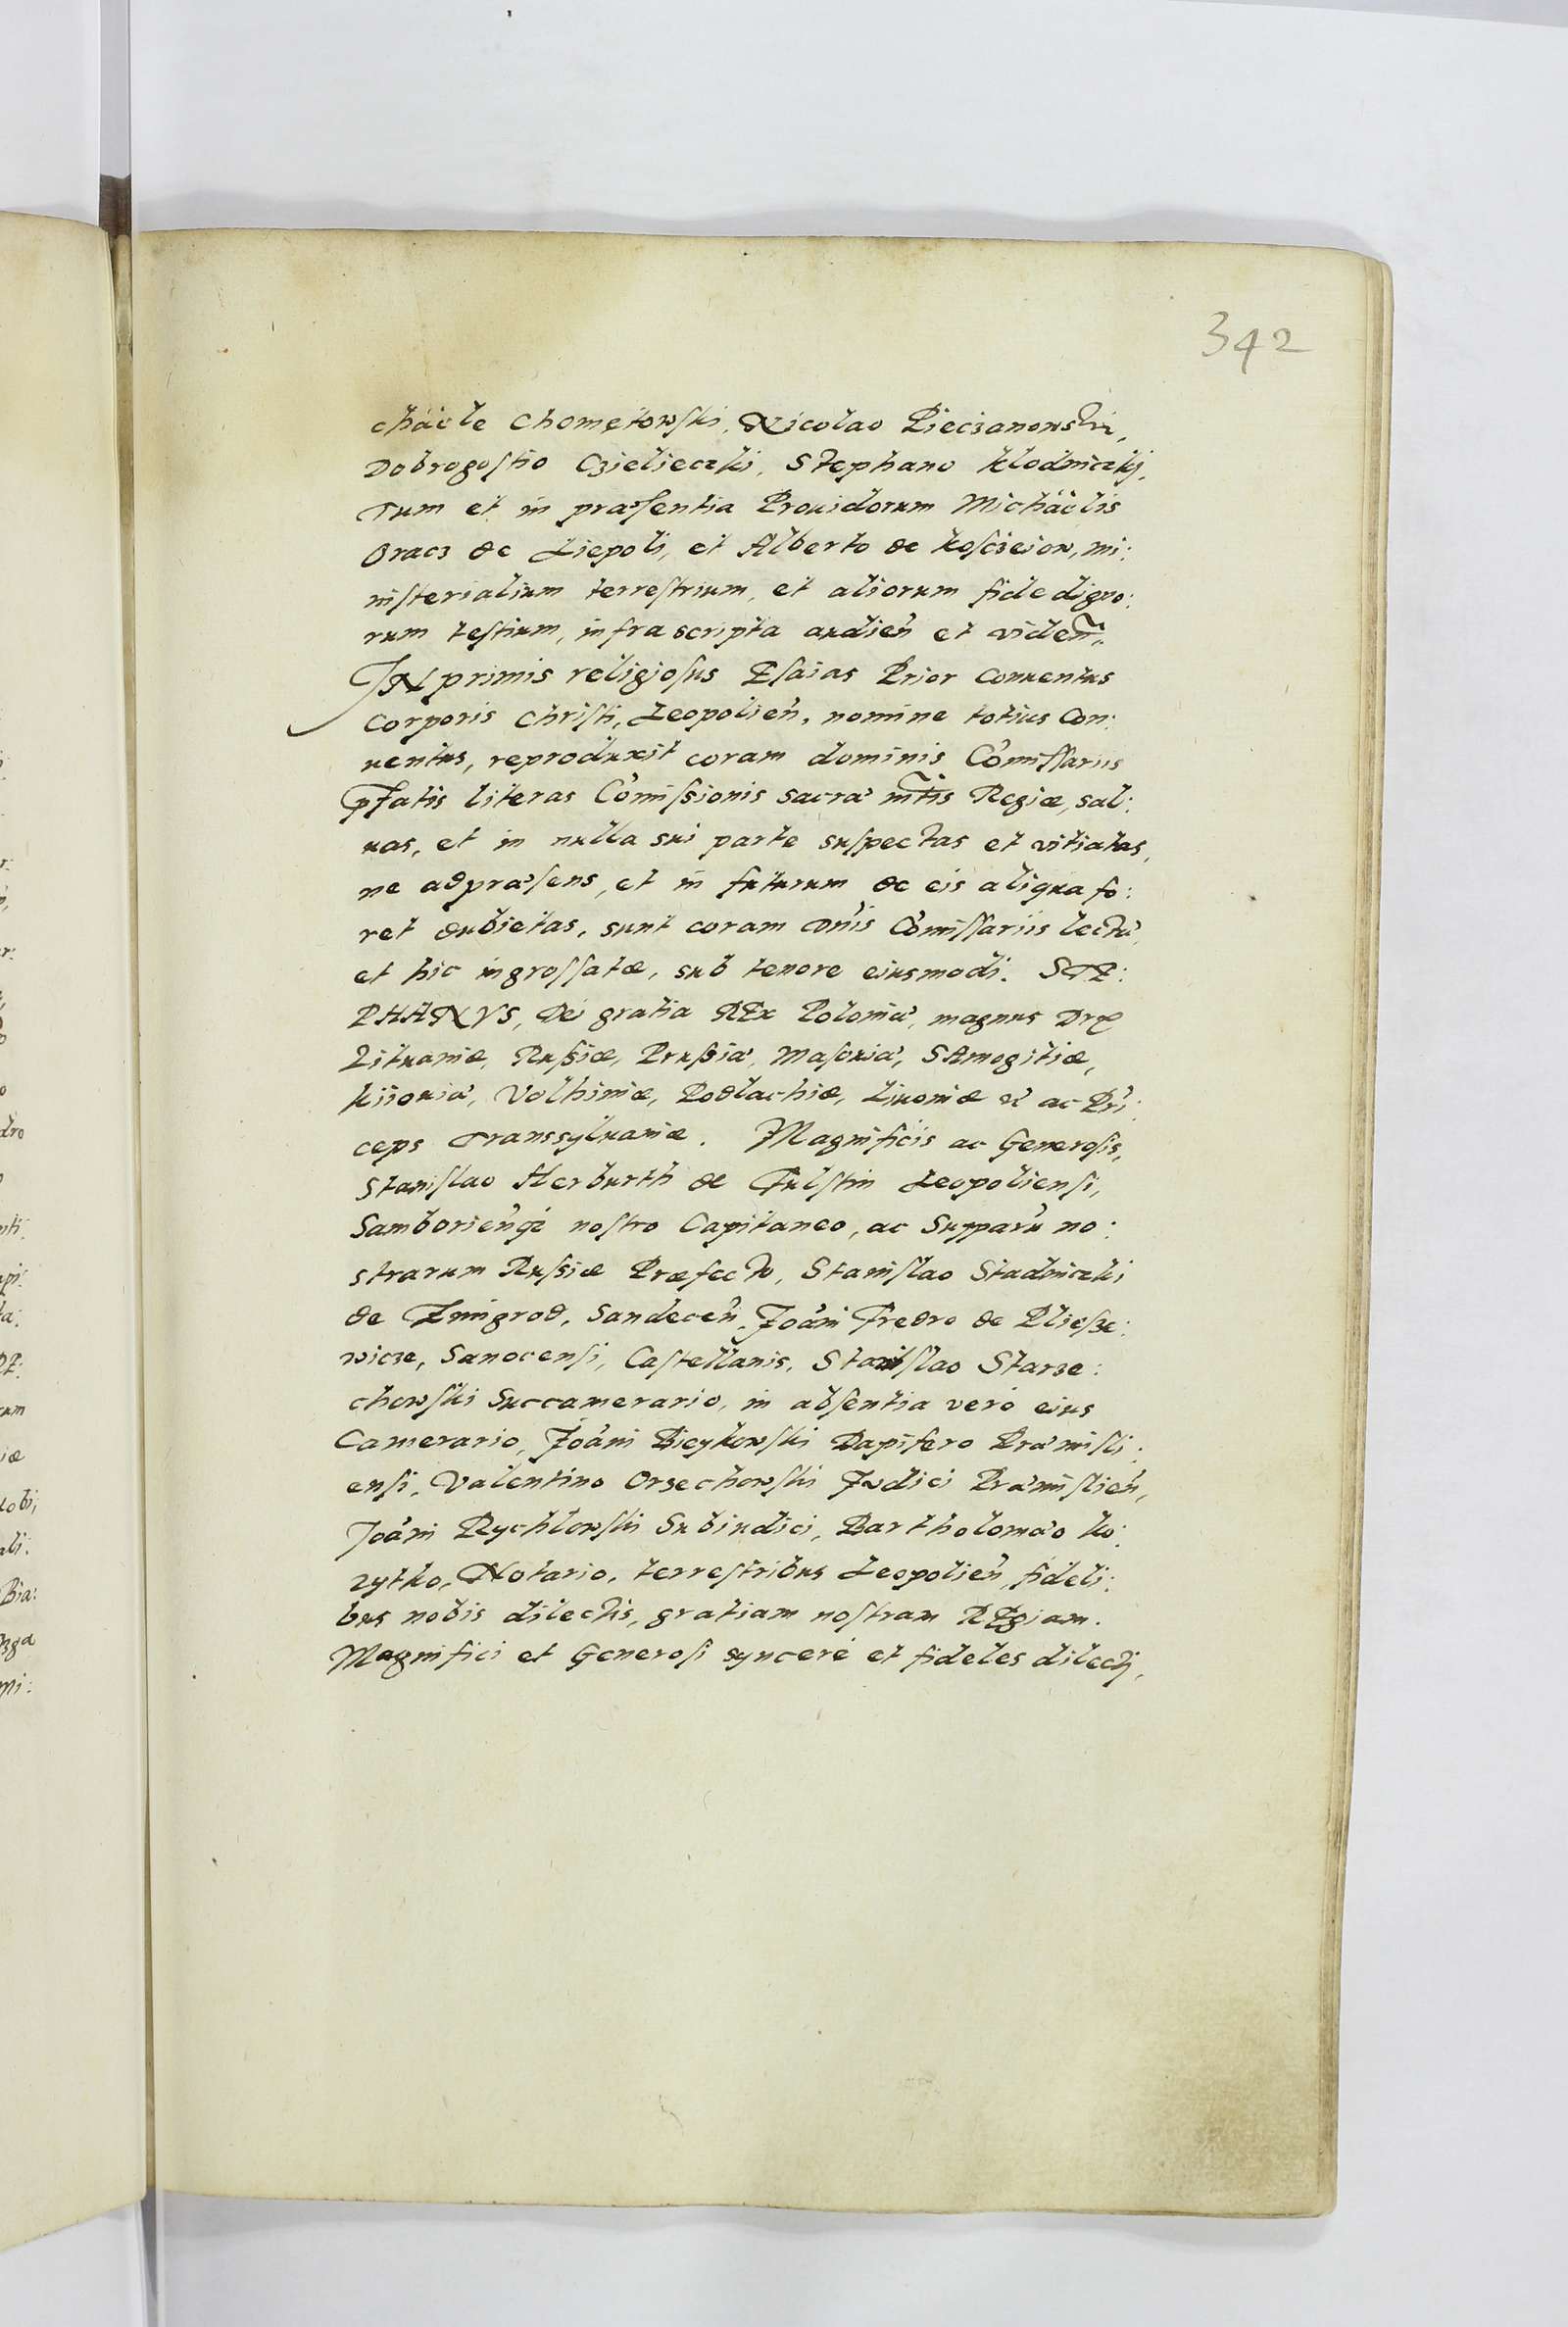 342
chäele Chomętowski, Nicolao Pieczanowski,
Dobrogostio Czielieczki, Stephano Klodniczkj,
Tum et in præsentia Prouidorum Michäelis
Gracz de Liepoli, et Alberto de Kosczeiow, mi:
nisterialium terrestrium, et aliorum fide digno:
rum testium, infra scripta audien̄ et viden̄.
IN primis religiosus Esaias Prior Conuentus
Corporis Christi, Leopolien̄, nomine totius Con:
uentus, reproduxit coram dominis Com̄issariis
p̄fatis literas Com̄issionis Sacræ M̄tis Regiæ, sal:
uas, et in nulla sui parte suspectas et vitiatas,
ne ad præsens, et in futurum de eis aliqua fo:
ret dubietas, sunt coram Dn̄is Com̄issariis lectæ,
et hic ingrossatæ, sub tenore eiusmodi. STE:
PHANVS, Dei gratia REx Poloniæ, magnus Dux
Lituaniæ, Russiæ, Prussiæ, Masouiæ, SAmogitiæ,
Kiiouiæ, Volhiniæ, Podlachiæ, Liuoniæ &c̄ ac Prī:
ceps Transsyluaniæ. Magnificis ac Generosis,
Stanislao Herburth de Fulstin Leopoliensi,
Samborien̄qȝ nostro Capitaneo, ac Supparū no:
strarum Russiæ Præfecto, Stanislao Stadniczki
de Zmigrod, Sandecen̄, Joān̄i Fredro de Pliesze:
wicze, Sanocensi, Castellanis, Stanislao Starze:
chowski Succamerario, in absentia verò eius
Camerario, Joān̄i Bieykowski Dapifero Præmisli:
ensi, Valentino Orzechowski Judici Præmislien̄,
Joān̄i Rychlowski Subiudici, Bartholomæo Ko:
zytko, Notario, terrestribus Leopolien̄, fideli:
bus nobis dilectis, gratiam nostram REgiam.
Magnifici et Generosi syncerè et fideles dilectj,
dro
um
iæ
Bia:
mi: